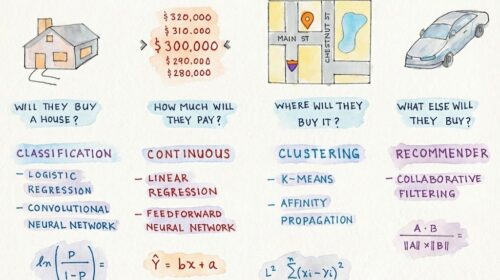 $320,000
$310,000
$300,000
$290,000
$280,000
MAIN ST
CHESTNUT ST
WILL THEY BUY
A HOUSE?
HOW MUCH WILL
THEY PAY?
WHERE WILL THEY
BUY IT?
WHAT ELSE WILL
THEY BUY?
CLASSIFICATION
- LOGISTIC
REGRESSION
- CONVOLUTIONAL
NEURAL NETWORK
ln(P
1-P) =
CONTINUOUS
- LINEAR
REGRESSION
- FEEDFORWARD
NEURAL NETWORK
Ŷ = bx + a
CLUSTERING
- K-MEANS
- AFFINITY
PROPAGATION
L² Σ (xi - yi)²
n
RECOMMENDER
- COLLABORATIVE
FILTERING
A · B
||A|| × ||B|| =